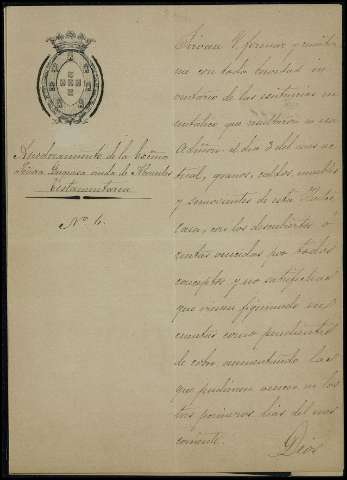 Apoderamiento de la Excma
Señora Duquesa viuda de
Testamentaria
Nº 6.
Sirvase V. formar y remitir
me con toda brevedad in
ventario de las existencias en
metálico que resultaron en esa
Admon. el dia 3 del mes ac
tual, granos, caldos, muebles
y semovientes de esta
Casa, con los descubiertos ó
rentas vencidas por todos
conceptos y no satisfechas
que vienen figurando en
cuentas como pendientes
de cobro aumentando las
que pudieran vencer en los
tres primeros dias del mes
corriente.
Dios